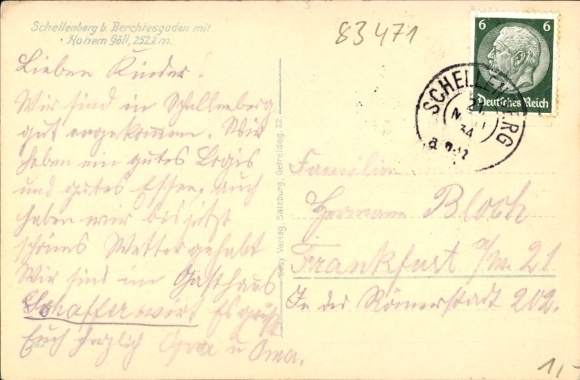 Schellenberg b. Berchtesgaden mit
Hohem Göll, 2522 m.
83471
6 6
Deutsches Reich
SCHELLENBERG
21
34
Lieben Kinder!
Wir sind in Schellenberg
gut angekommen. Wir
haben ein gutes Logis
und gutes Essen, auch
haben wir bis jetzt
schönes Wetter gehabt
Wir sind im Gasthaus
Es grüßt
Euch herzlich Opa u Oma.
Verlag, Salzburg, Getreideg. 22.
Familie
Hermann Bloch
Frankfurt a/M. 21
In der Römerstadt 202.
1,-